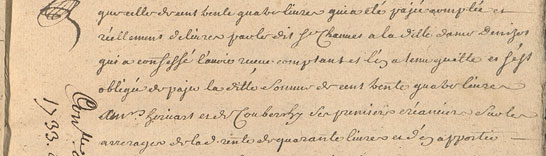 que celle de cent trente quatre livres qui a été païée comptée et
réellement delivrée par le dit Sr Channes a la ditte dame Denizot
qui a confessé l'avoir receue comptant et l'en a tenu quitte et s'est
obligée de païer la ditte somme de cent trente quatre livres
a Mrs hornart et de Combershy ses premiers créanciers sur les
arrerages de lad. rente de quarante livres et d'en apporter
1733.